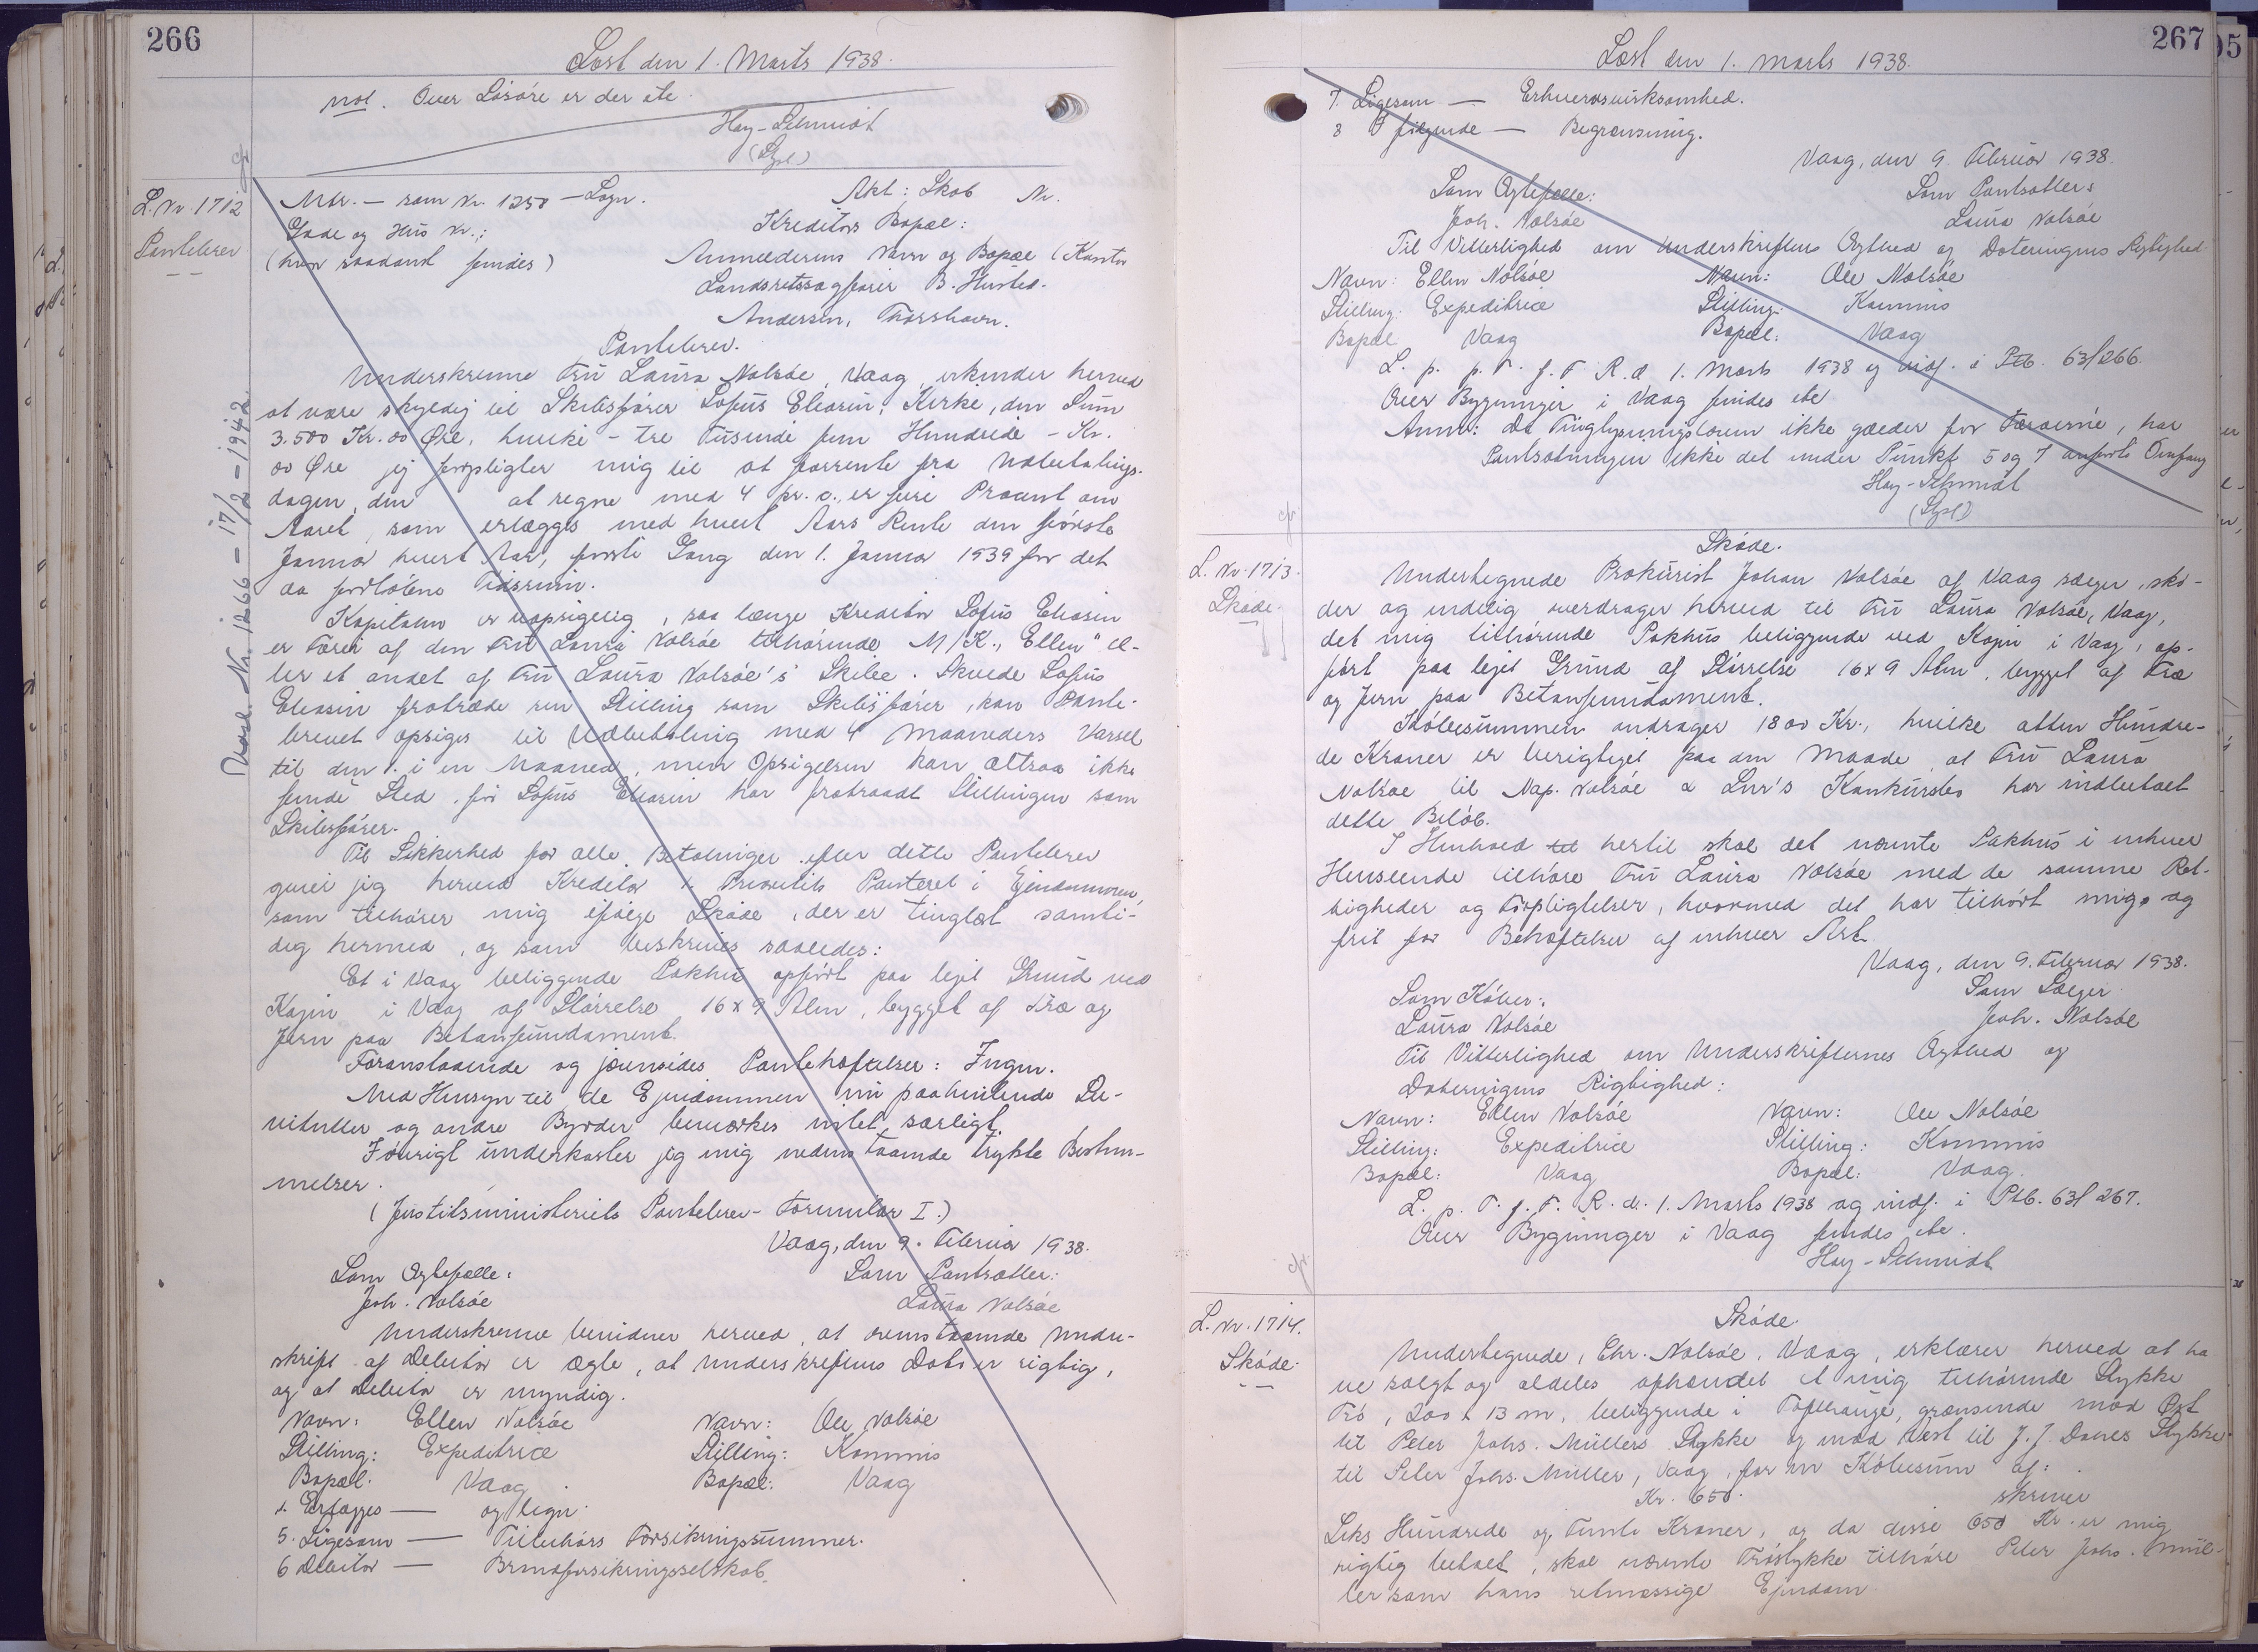 266
Læst den 1. Marts 1938.
not. Over Lösöre er der ete
Hoy-Schmidt
(Sgd)
L. Nr. 1712
Pantebrev
Mtr. — som Nr. 1250 — Sogn.
Akt: Skab Nr.
Gade og Hus Nr.:
Kreditors Bopæl:
(hvor saadant findes)
Anmelderens Navn og Bopæl (Kontor
Landsretssagfører B. Husted-
Andersen, Thorshavn.
Pantebrev.
Underskrevne Fru Laura Nolsöe, Vaag, erkender herved
at være skyldig til Skibsfører Sofus Eliasen, Kirke, den Sum
3.500 Kr. 00 Øre, hvilke - tre Tusinde fem Hundrede - Kr.
00 Øre jeg forpligter mig til at forrente fra Udbetalings-
dagen, den at regne med 4 pr. c., er fire Procent om
Aaret, som erlægges med hvert Aars Rente den förste
Januar hvert Aar, første Gang den 1. Januar 1939 for det
da forløbne Tidsrum.
Kapitalen er uopsigelig, saa længe Kreditor Sofus Eliasen
er Fører af den Fru Laura Nolsöe tilhørende M/K. „Ellen" el-
ler et andet af Fru Laura Nolsöe's Skibe. Skulde Sofus
Eliasen fratræde sin Stilling som Skibsfører, kan Pante-
brevet opsiges til Udbetaling med 4 Maaneders Varsel
til den 1. i en Maaned, men Opsigelsen kan altsaa ikke
finde Sted, før Sofus Eliasen har fratraadt Stillingen som
Skibsfører.
Til Sikkerhed for alle Betalinger efter dette Pantebrev
giver jeg herved Kreditor 1. Prioritets Panteret i Ejendommen,
som tilhører mig ifølge Skøde, der er tinglæst samti-
dig hermed, og som beskrives saaledes:
Et i Vaag beliggende Pakhus opført paa lejet Grund ved
Kajen i Vaag af Størrelse 16 x 9 Alen, bygget af Træ og
Jern paa Betonfundament.
Foranstaaende og jævnsides Pantehæftelser: Ingen.
Med Hensyn til de Ejendommen nu paahvilende Ser-
vitutter og andre Byrder bemærkes intet særligt.
Iøvrigt underkaster jeg mig nedenstaaende trykte Bestem-
melser.
(Justitsministeriets Pantebrev-Formular I.)
Vaag, den 9. Februar 1938.
Som Ægtefælle:
Som Pantsætter:
Joh. Nolsöe
Laura Nolsöe
Underskrevne bevidner herved, at ovenstaaende Under-
skrift af Debitor er ægte, at Underskriftens Dato er rigtig,
og at Debitor er myndig.
Navn: Ellen Nolsöe
Navn: Ole Nolsöe
Stilling: Expeditrice
Stilling: Kommis
Bopæl: Vaag
Bopæl: Vaag
1. Erlægges — og lign.
5. Ligesom — Tilbehørs Forsikringssummer.
6 Debitor — Brandforsikringsselskab.
Nr. 1266 - 17/2 - 1942.
267
Læst den 1. Marts 1938.
7. Ligesom — Erhvervsvirksomhed.
8 I følgende — Begrænsning.
Vaag, den 9. Februar 1938.
Som Ægtefælle:
Som Pantsætter:
Joh. Nolsöe
Laura Nolsöe
Til Vitterlighed om Underskriftens Ægthed og Dateringens Rigtighed
Navn: Ellen Nolsöe
Navn: Ole Nolsöe
Stilling: Expeditrice
Stilling: Kommis
Bopæl Vaag
Bopæl: Vaag
L. p. p. T. f. F. R. d 1. Marts 1938 og indf. i Ptb. 63/266.
Over Bygninger i Vaag findes ete
Anm: Da Tinglysningsloven ikke gælder for Færøerne, har
Pantsætningen ikke det under Punkt 5 og 7 anførte Omfang
Hoy-Schmidt
(Sgd)
L. Nr. 1713.
Skøde.
Skøde.
Undertegnede Prokurist Johan Nolsöe af Vaag sælger, skø-
der og endelig overdrager herved til Fru Laura Nolsöe, Vaag,
det mig tilhørende Pakhus beliggende ved Kajen i Vaag, op-
ført paa lejet Grund af Størrelse 16 x 9 Alen, bygget af Træ
og Jern paa Betonfundament.
Købesummen andrager 1800 Kr., hvilke atten Hundre-
de Kroner er berigtiget paa den Maade, at Fru Laura
Nolsöe til Nap. Nolsöe & Søn's Konkursbo har indbetalt
dette Beløb.
I Henhold til hertil skal det nævnte Pakhus i enhver
Henseende tilhøre Fru Laura Nolsöe med de samme Ret-
tigheder og Forpligtelser, hvormed det har tilhørt mig, og
frit for Behæftelser af enhver Art.
Vaag, den 9. Februar 1938.
Som Køber:
Som Sælger
Laura Nolsöe
Joh. Nolsöe
Til Vitterlighed om Underskrifternes Ægthed og
Dateringens Rigtighed:
Navn: Ellen Nolsöe
Navn: Ole Nolsöe
Stilling: Expeditrice
Stilling: Kommis
Bopæl: Vaag
Bopæl: Vaag.
L. p. T. f. F. R. d. 1. Marts 1938 og indf. i Ptb. 63/267.
Over Bygninger i Vaag findes ete.
Hoy-Schmidt
L. Nr. 1714.
Skøde.
Skøde.
Undertegnede, Chr. Nolsöe, Vaag, erklærer herved at ha
ve solgt og aldeles afhændet et mig tilhørende Stykke
Trø, 13 m, beliggende i grænsende mod Øst
til Peter Johs. Müllers Stykke og mod Vest til J. J. Stykke
til Peter Johs. Müller, Vaag, for en Købesum af:
Kr. 650.
skriver
Seks Hundrede og Femti Kroner, og da disse 650 Kr. er mig
rigtig betalt, skal nævnte Trøstykke tilhøre Peter Johs. Mül-
ler som hans retmæssige Ejendom